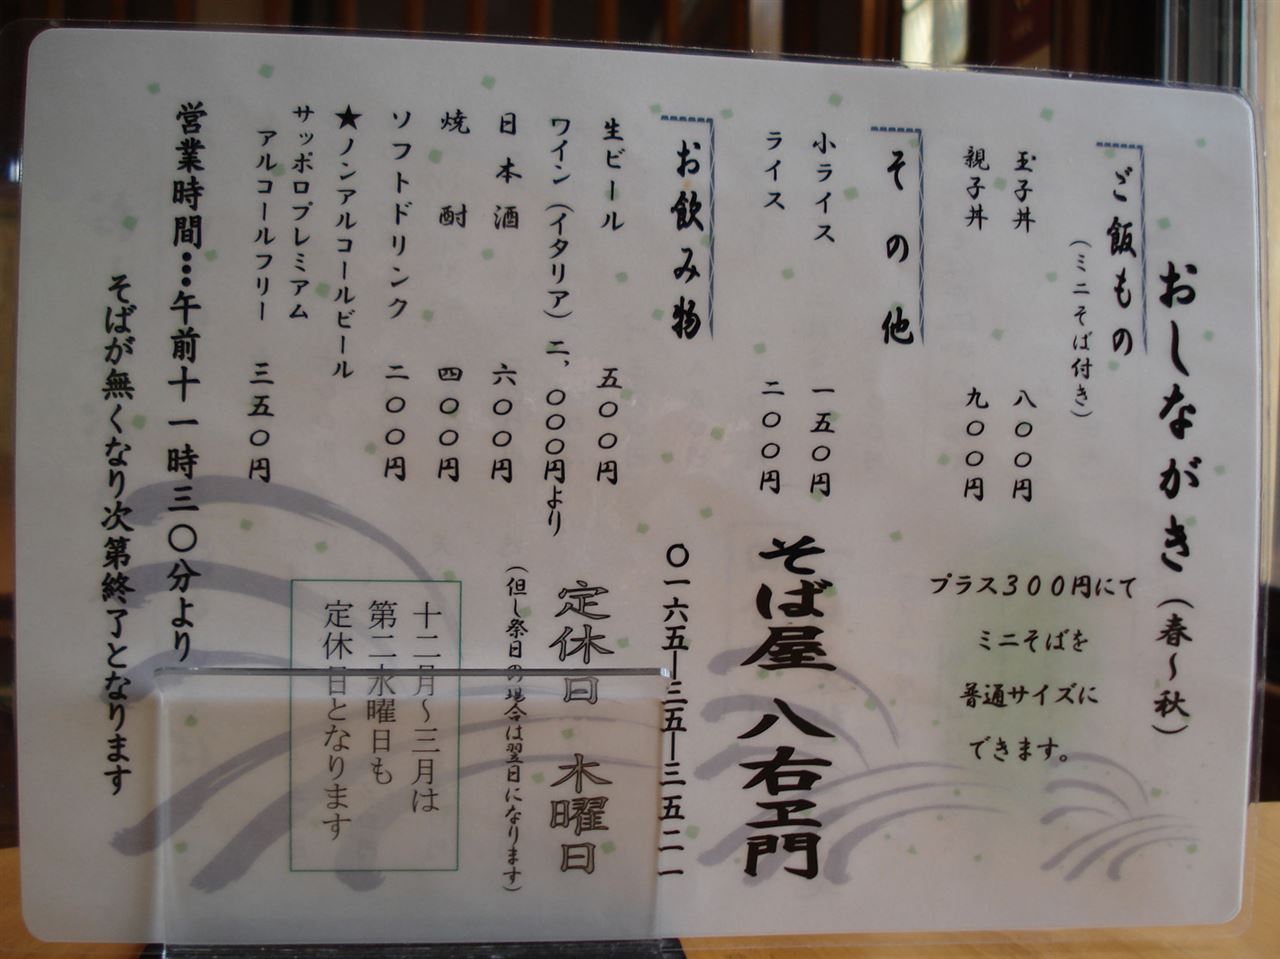 おしながき（春～秋）
ご飯もの
（ミニそば付き）
玉子丼 八〇〇円
親子丼 九〇〇円
プラス３００円にて
ミニそばを
普通サイズに
できます。
その他
小ライス 一五〇円
ライス 二〇〇円
お飲み物
生ビール 五〇〇円
ワイン（イタリア）二、〇〇〇円より
日本酒 六〇〇円
焼酎 四〇〇円
ソフトドリンク 二〇〇円
★ノンアルコールビール
サッポロプレミアム
アルコールフリー 三五〇円
そば屋 八右ヱ門
〇一六五―三五―三五二一
定休日 木曜日
（但し祭日の場合は翌日になります）
十二月～三月は
第二水曜日も
定休日となります
営業時間…午前十一時三〇分より
そばが無くなり次第終了となります